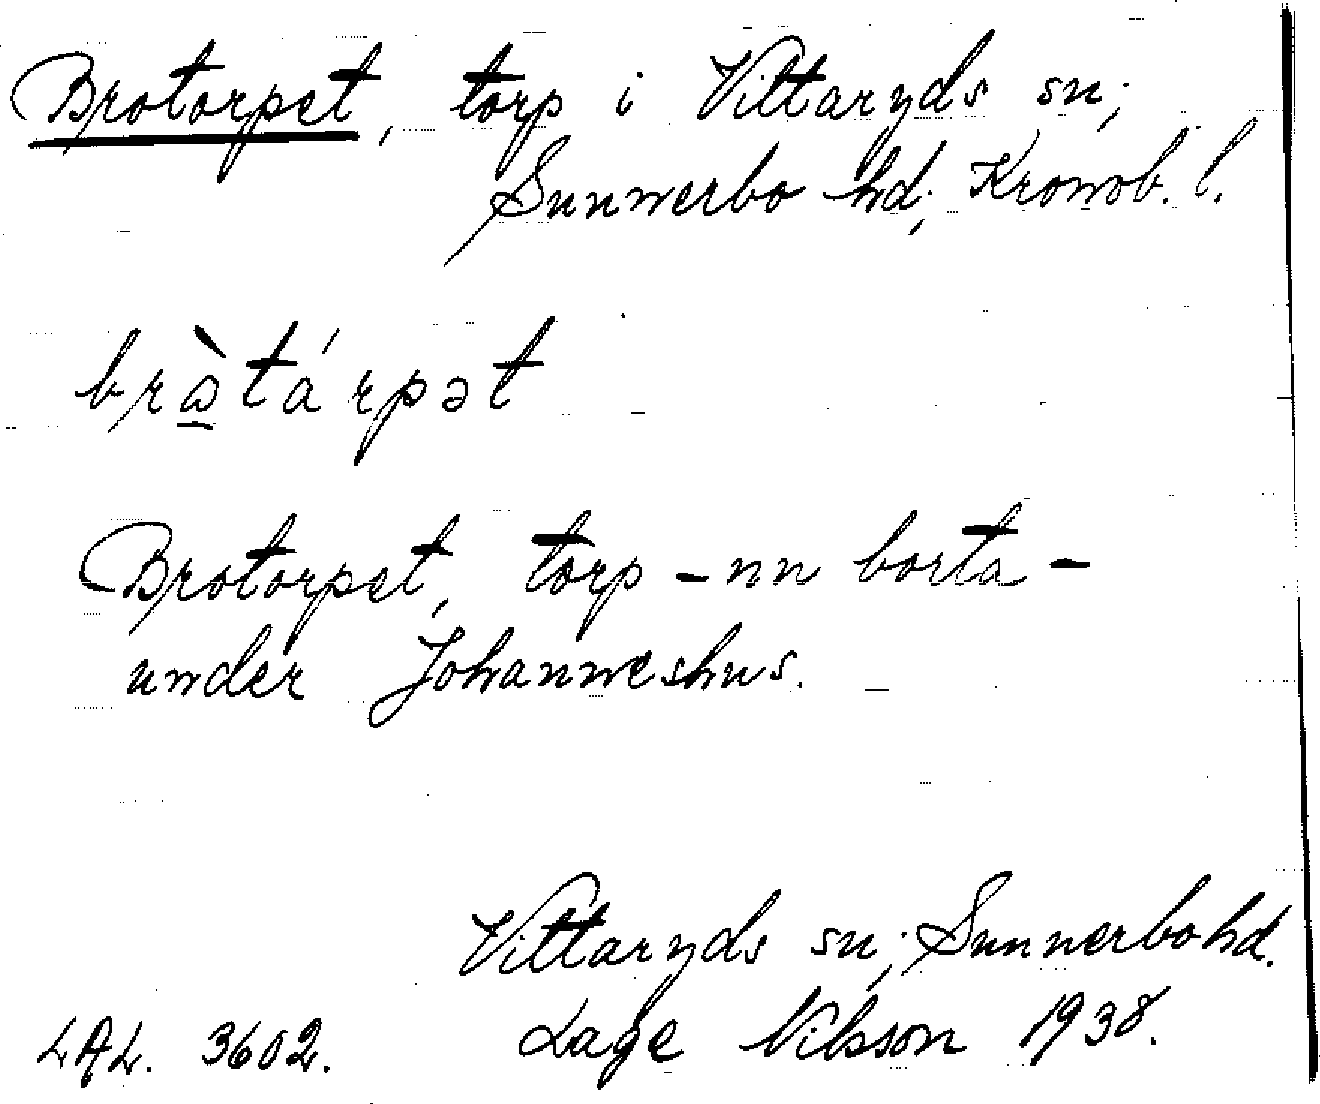 Brotorpet, torp i Vittaryds sn;
Sunnerbo hd; Kronob. l.
bràtárpət
Brotorpet, torp - nn borta -
under Johanneshus.
Vittaryds sn; Sunnerbo hd.
LAL. 3602. Lage Nilsson 1938.